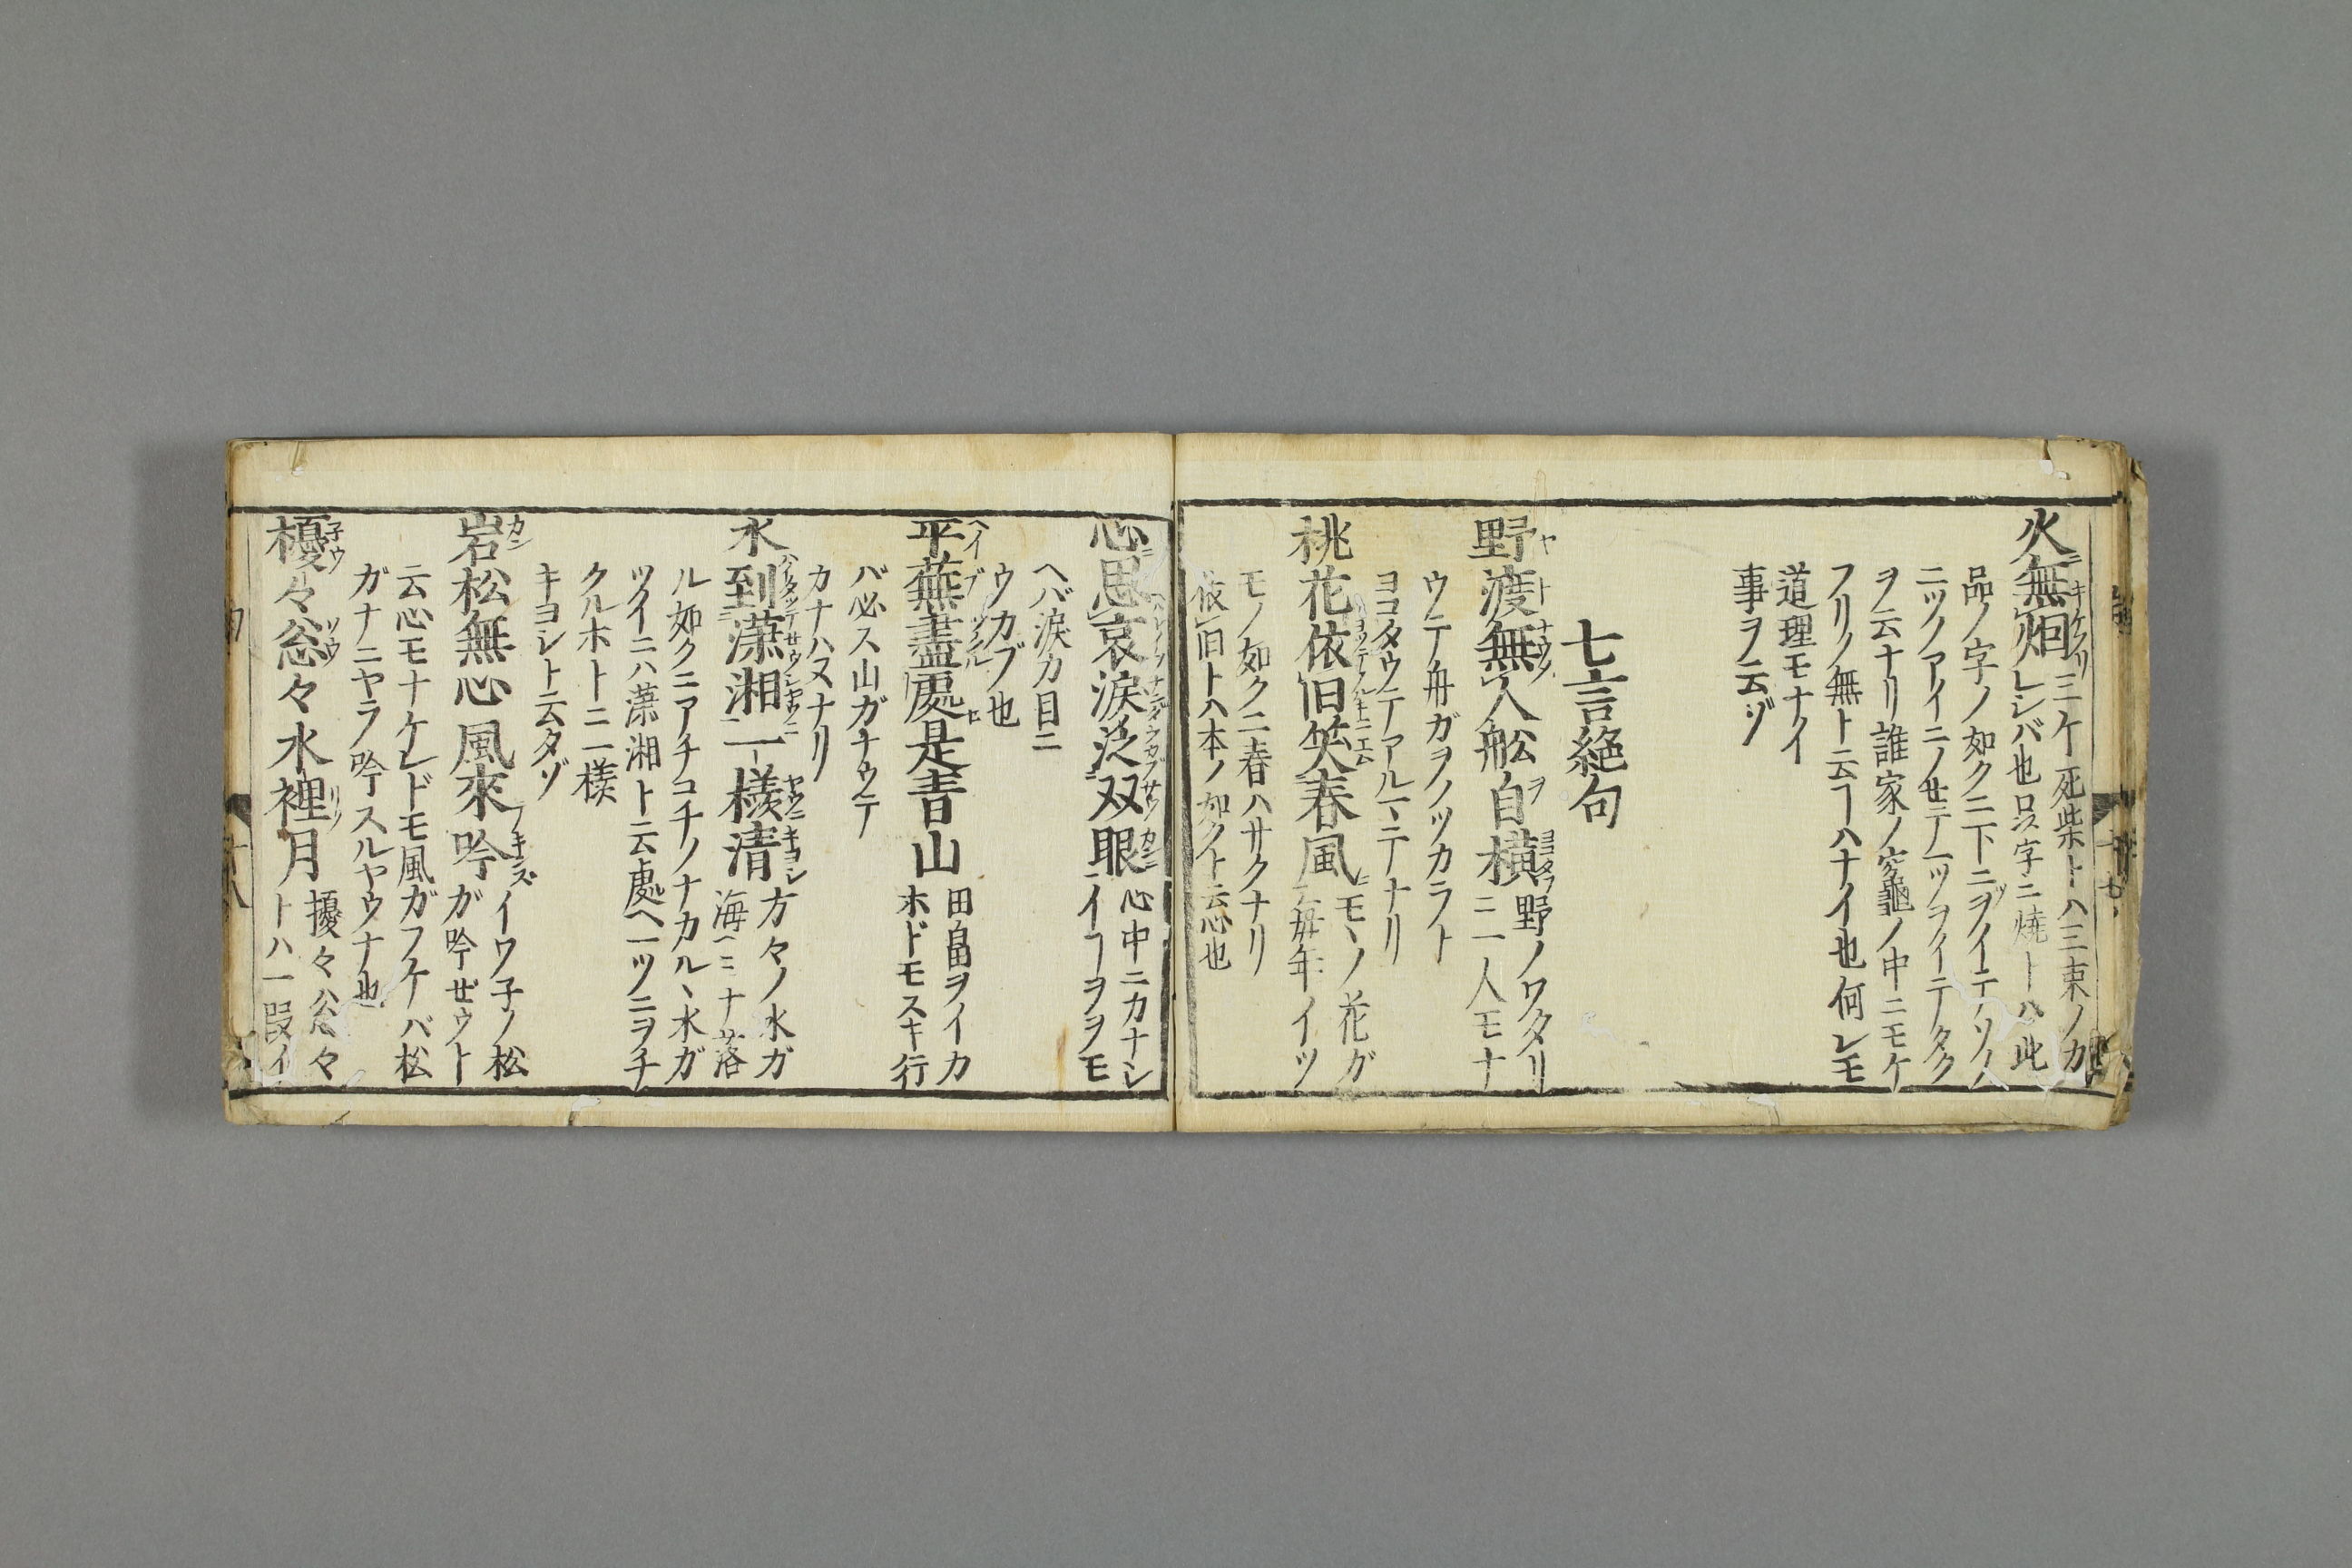 火無烟三ケ死柴トハ三束ノカ
レシバ也只ス字ニ焼トハ此
品ノ字ノ如クニ下ニヲイテソノ
二ツノアイニノせテ一ツヲイテタク
ヲ云ナリ誰家ノ竈ノ中ニモケ
フリノ無ト云フハナイ也何レモ
道理モナイ
事ヲ云ゾ
七言絶句
野渡無人舩自横野ノワタリ
ニ一人モナ
ウテ舟ガヲノツカラト
ヨコタウテアルヽテナリ
桃花依旧笑春風モヽノ花ガ
毎年イツ
モノ如クニ春ハサクナリ
依旧トハ本ノ如クト云心也
心思哀涙泛双眼心中ニカナシ
イヿヲヲモ
ヘバ涙カ目ニ
ウカブ也
平蕪盡處是青山田畠ヲイカ
ホドモスキ行
バ必ス山ガナウテ
カナハヌナリ
水到瀟湘一樣清方々ノ水ガ
海ヘミナ落
ル如クニアチコチノナカルヽ水ガ
ツイニハ瀟湘ト云處ヘ一ツニヲチ
クルホトニ一樣
キヨシト云タゾ
岩松無心風來吟イワ子ノ松
ガ吟せウト
云心モナケレドモ風ガフケバ松
ガナニヤラ吟スルヤウナ也
擾々忩々水裡月擾々忩々
トハ一段イ
十八